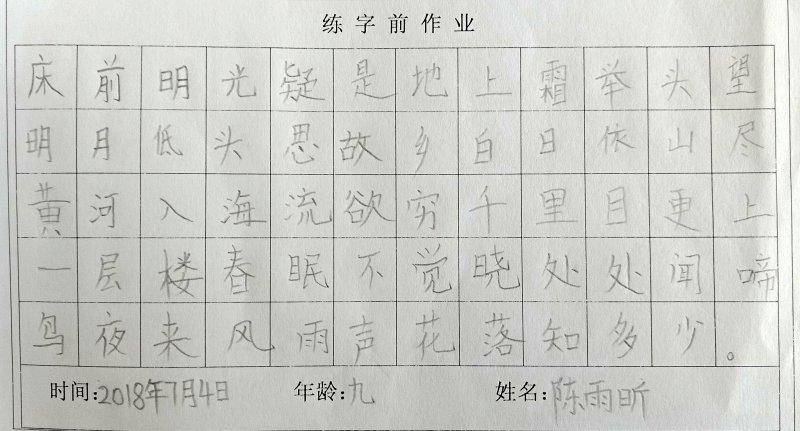 练字前作业
床前明光疑是地上霜举头望
明月低头思故乡白日依山尽
黄河入海流欲穷千里目更上
一层楼春眠不觉晓处处闻啼
鸟夜来风雨声花落知多少。
时间:2018年7月4日 年龄:九 姓名:陈雨昕